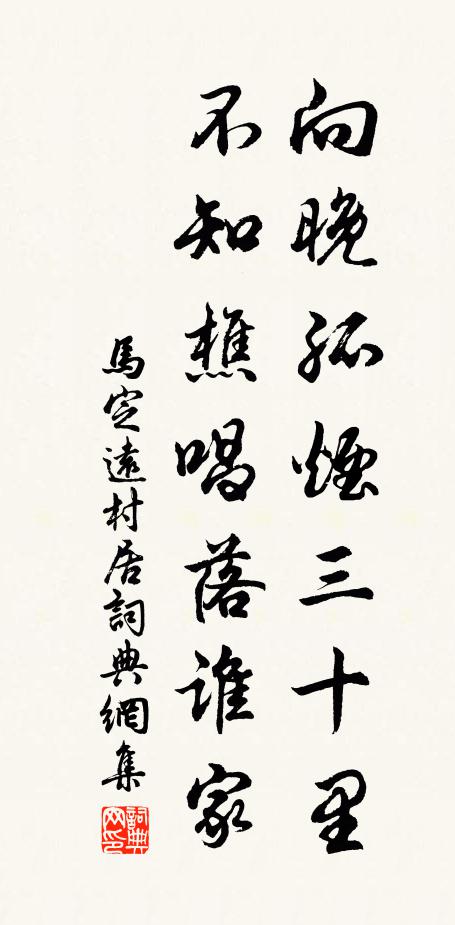 向晚孤煙三十里
不知樵唱落誰家
馬定遠村居詞典網集
詞典網印